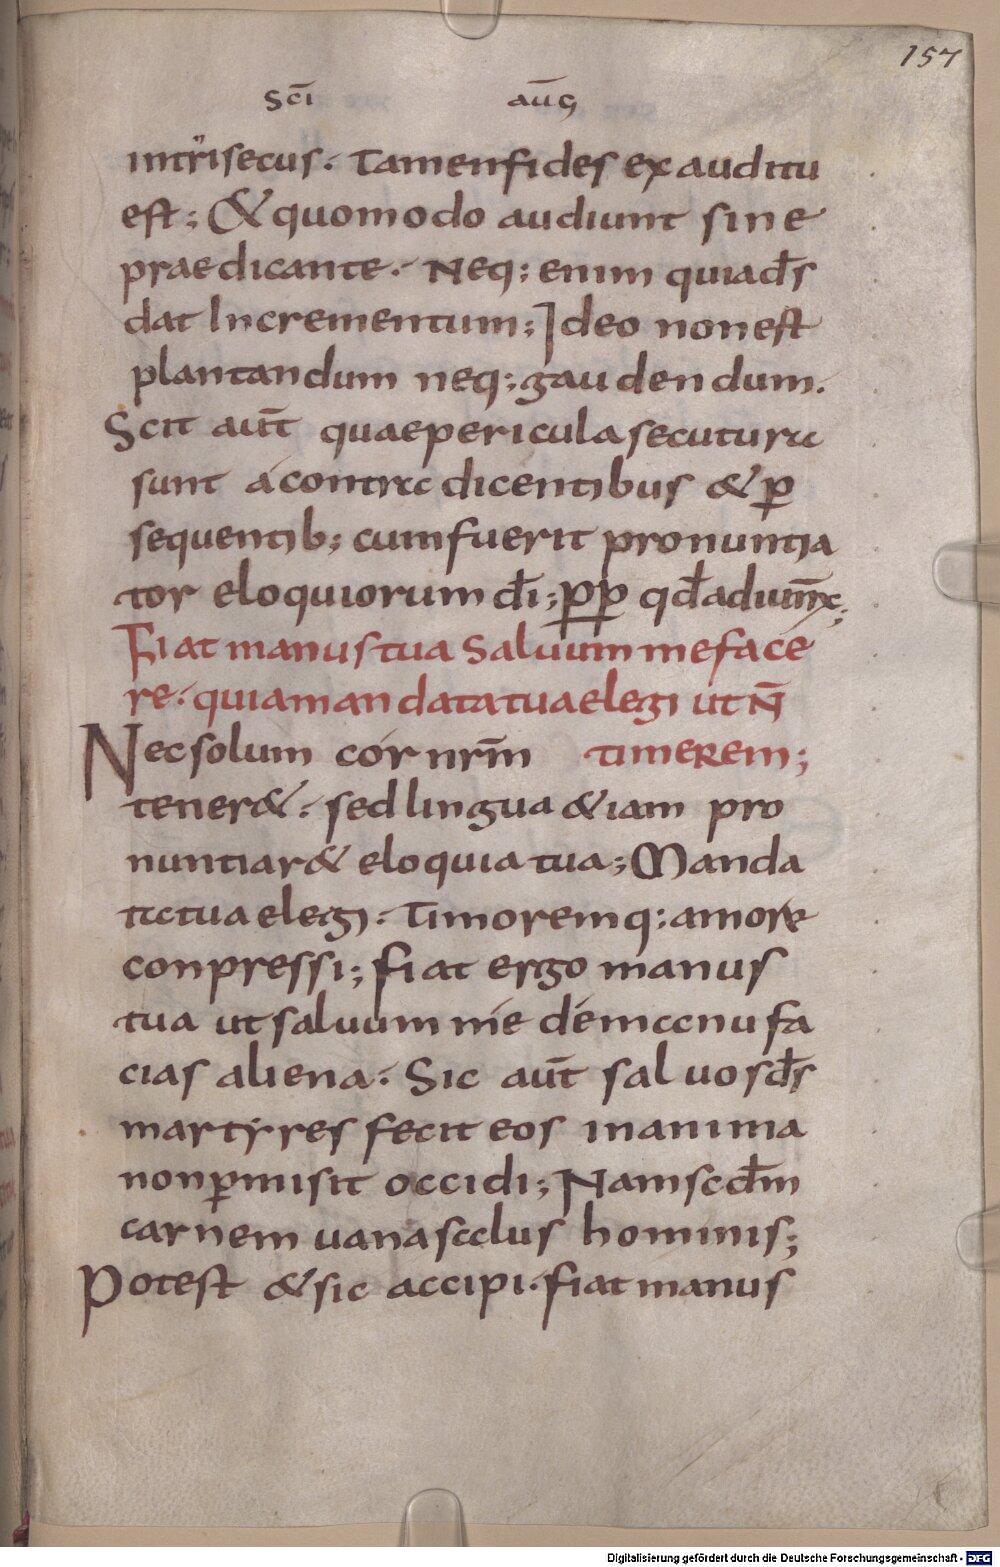 157
sc̄i auḡ
intrisecus. Tamen fides ex auditu
est; & quomodo audiunt sine
praedicante. Neq; enim quia ds̄
dat Incrementum; Ideo non est
plantandum neq; gaudendum.
Scit aut̄ quae pericula secutura
sunt á contra dicentibus & ꝑ
sequentib; cum fuerit pronuntia
tor eloquiorum dī; ꝓꝑ qd̄ adiunx̄;
Fiat manus tua Saluum me face
re. quia mandata tua elegi ut N̄
timerem;
Nec solum cór nrm̄
tener&. sed lingua &iam pro
nuntiar& eloquia tua; Manda
ta tua elegi. Timoremq; amore
conpressi; fiat ergo manus
tua ut saluum mé dé manu fa
cias aliena. Sic aut̄ saluos ds̄
martyres fecit eos in anima
non ꝑmisit occidi; Nam scd̄m
carnem uana salus hominis;
Potest & sic accipi. fiat manus
Digitalisierung gefördert durch die Deutsche Forschungsgemeinschaft - DFG